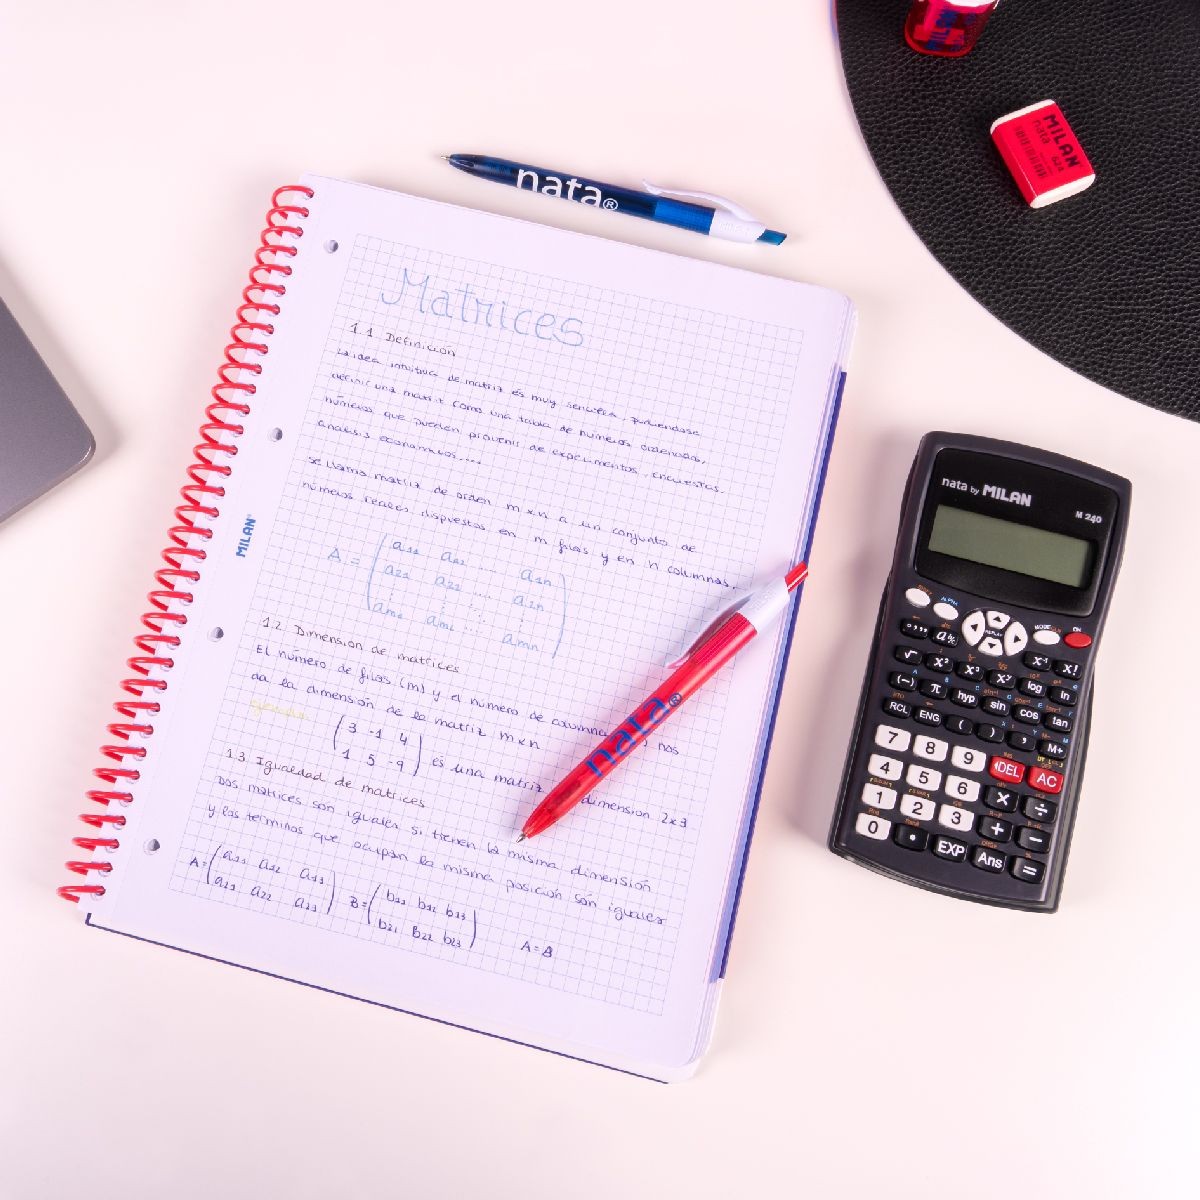 MILAN
nata®
MILAN
nata
624
Matrices
1.1 Definición
La idea intuitiva de matriz es muy sencilla, pudiéndose
definir una matriz como una tabla de números ordenados,
números que pueden provenir de experimentos, encuestas,
análisis económicos....
se llama matriz de orden m×n a un conjunto de
números reales dispuestos en m filas y en n columnas.
A = ( a11 a12 ... a1n
a21 a22 ... a2n
am1 am2 amn )
MILAN®
1.2 Dimension de matrices
El número de filas (m) y el número de columna nos
da la dimensión de la matriz m×n
ejemplo:
( 3 -1 4
1 5 -9 ) es una matriz dimension 2×3
1.3. Igualdad de matrices
Dos matrices son iguales si tienen la misma dimensión
y los términos que ocupan la misma posición son iguales
A=( a11 a12 a13 B=( b11 b12 b13
a21 a22 a23 ) b21 B22 b23 ) A=B
nata®
nata by MILAN
M 240
ALPHA MODE ON
° , ,, a b/c REPLAY x-1 x!
√ x² x³ log ln
(−) π hyp sin cos tan
RCL ENG ( ) , M+
7 8 9 DEL AC
4 5 6 × ÷
1 2 3 + −
0 • EXP Ans =